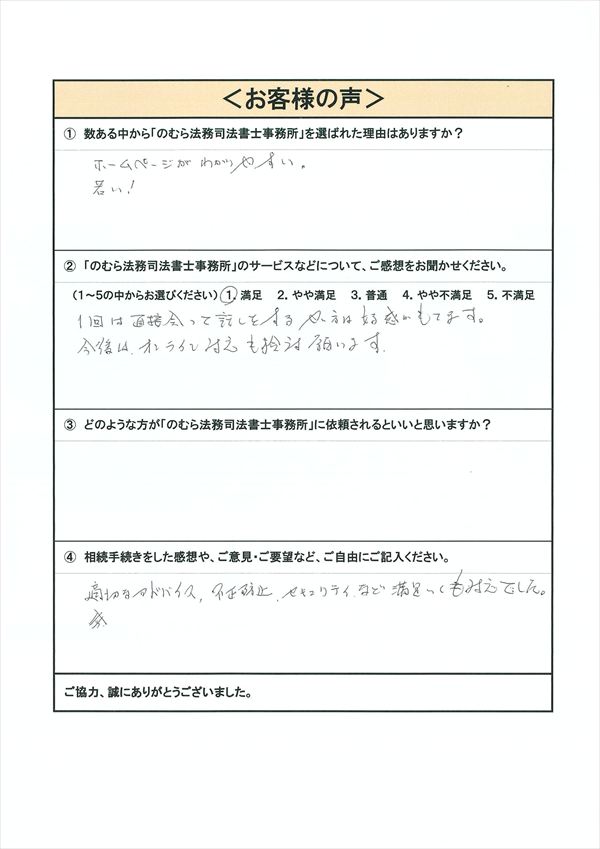 ＜お客様の声＞
① 数ある中から「のむら法務司法書士事務所」を選ばれた理由はありますか？
ホームページがわかりやすい。
若い！
② 「のむら法務司法書士事務所」のサービスなどについて、ご感想をお聞かせください。
（1～5の中からお選びください） 1. 満足 2. やや満足 3. 普通 4. やや不満足 5. 不満足
1回は直接会って話しをするやり方は好感がもてます。
今後は、オンライン対応も検討願います。
③ どのような方が「のむら法務司法書士事務所」に依頼されるといいと思いますか？
④ 相続手続きをした感想や、ご意見・ご要望など、ご自由にご記入ください。
適切なアドバイス、不正防止、セキュリティなど満足 対応でした。
ご協力、誠にありがとうございました。